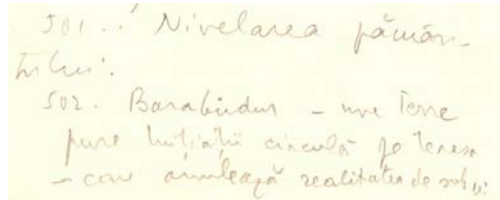 501.. Nivelarea pămân-
tului.
502. Barabudur - une Terre
pure Inițiații circulă pe terase
- care anulează realitatea de sub